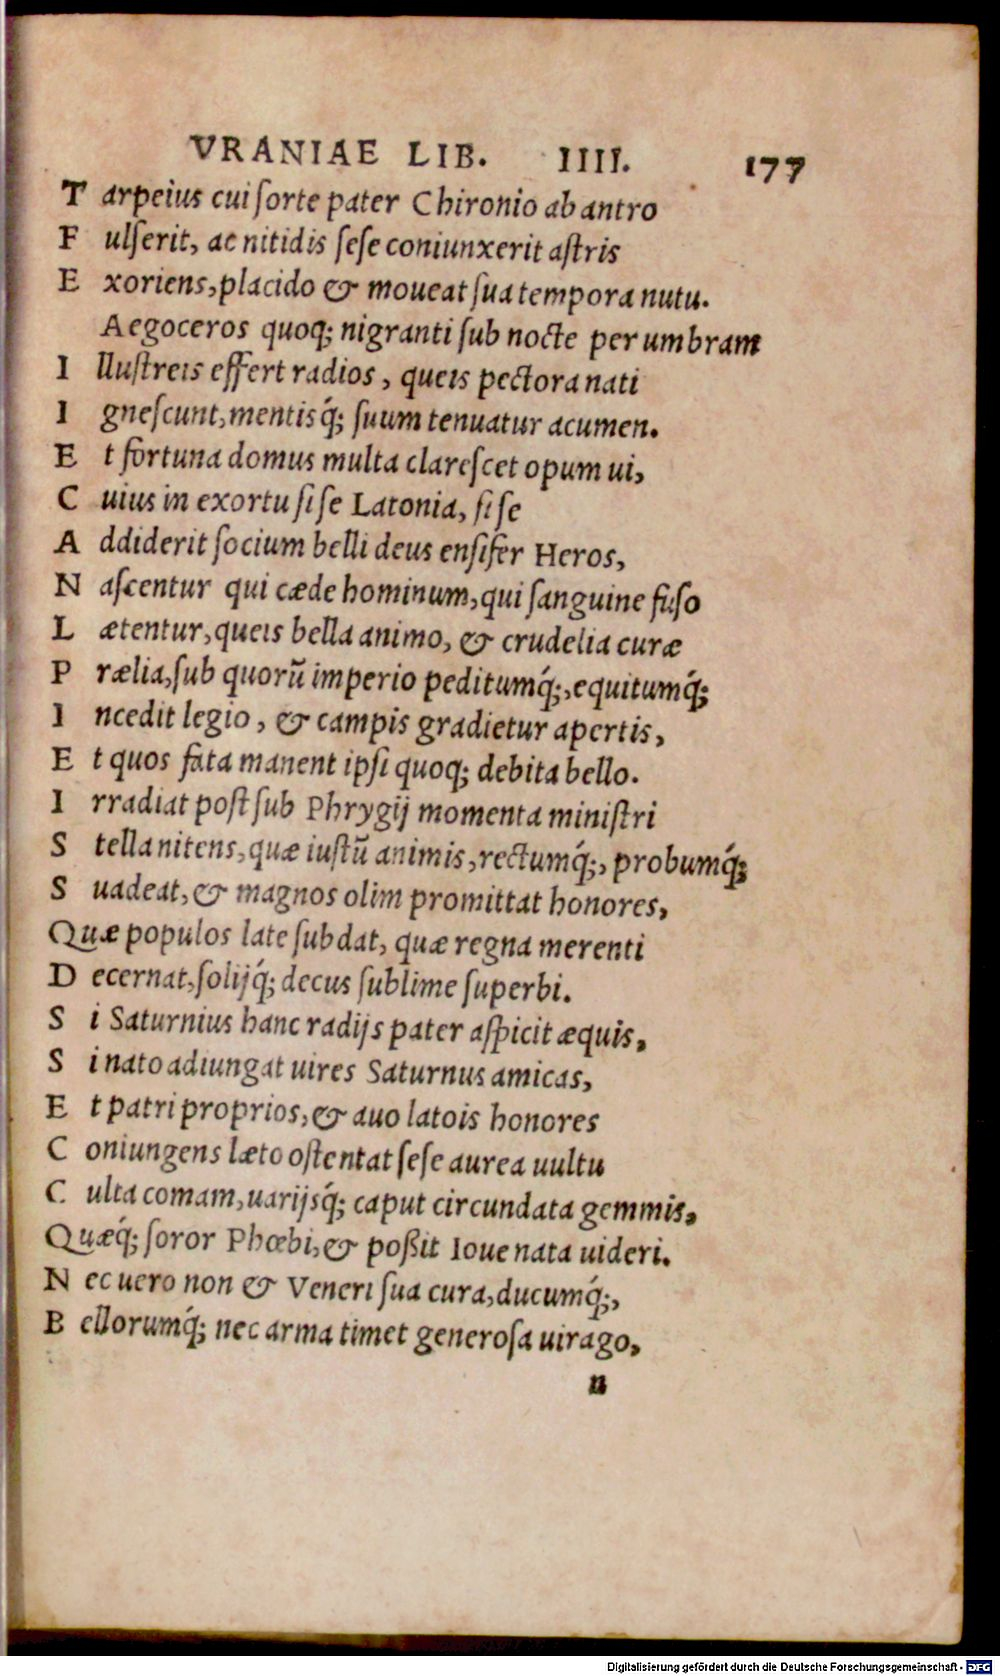 VRANIAE LIB. IIII. 177
T arpeius cui ſorte pater Chironio ab antro
F ulſerit, ac nitidis ſeſe coniunxerit aſtris
E xoriens, placido & moueat ſua tempora nutu.
Aegoceros quoq; nigranti ſub nocte per umbram
I lluſtreis effert radios, queis pectora nati
I gneſcunt, mentisq́; ſuum tenuatur acumen.
E t fortuna domus multa clareſcet opum ui,
C uius in exortu ſi ſe Latonia, ſi ſe
A ddiderit ſocium belli deus enſifer Heros,
N aſcentur qui cæde hominum, qui ſanguine fuſo
L ætentur, queis bella animo, & crudelia curæ
P rælia, ſub quorū imperio peditumq́;, equitumq́;
I ncedit legio, & campis gradietur apertis,
E t quos fata manent ipſi quoq; debita bello.
I rradiat poſt ſub Phrygij momenta miniſtri
S tella nitens, quæ iuſtū animis, rectumq́;, probumq́;
S uadeat, & magnos olim promittat honores,
Quæ populos late ſubdat, quæ regna merenti
D ecernat, ſolijq́; decus ſublime ſuperbi.
S i Saturnius hanc radijs pater aſpicit æquis,
S i nato adiungat uires Saturnus amicas,
E t patri proprios, & auo latois honores
C oniungens læto oſtentat ſeſe aurea uultu
C ulta comam, uarijsq́; caput circundata gemmis,
Quæq́; ſoror Phœbi, & poßit Ioue nata uideri.
N ec uero non & Veneri ſua cura, ducumq́;,
B ellorumq́; nec arma timet generoſa uirago,
n
Digitalisierung gefördert durch die Deutsche Forschungsgemeinschaft - DFG